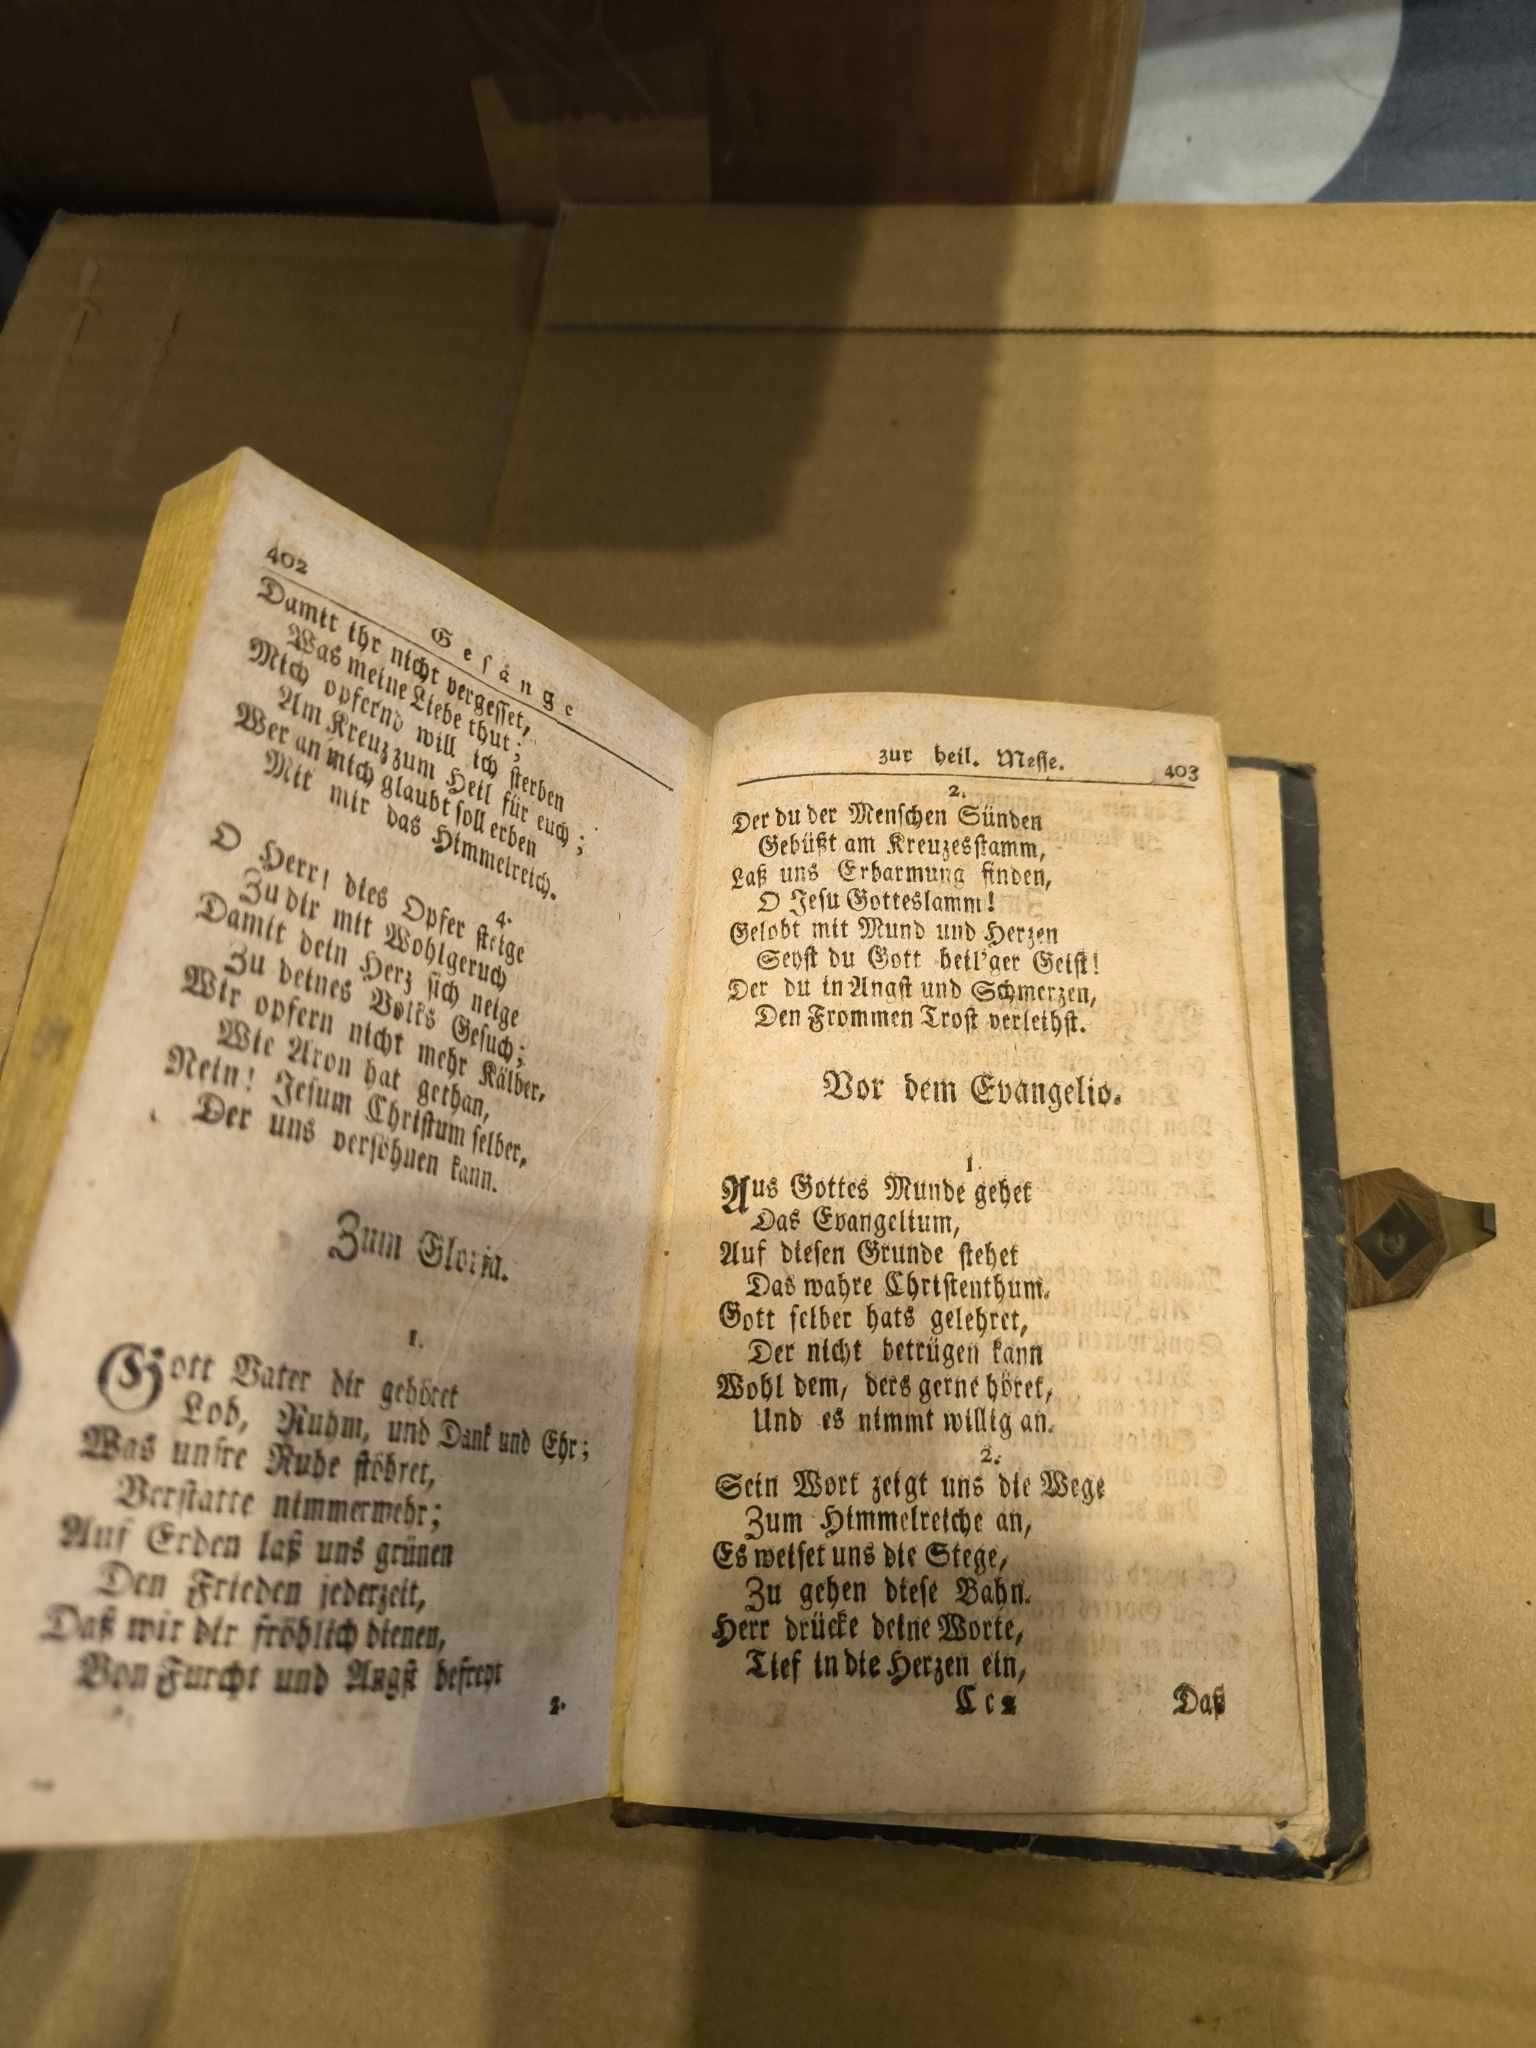 402
Gesänge
Damit ihr nicht vergesset,
Was meine Liebe thut;
Mich opfernd will ich sterben
Am Kreuz zum Heil für euch;
Wer an mich glaubt soll erben
Mit mir das Himmelreich.
4.
O Herr! dies Opfer steige
Zu dir mit Wohlgeruch
Damit dein Herz sich neige
Zu deines Volks Gesuch;
Wir opfern nicht mehr Kälber,
Wie Aron hat gethan,
Nein! Jesum Christum selber,
Der uns versöhnen kann.
Zum Gloria.
1.
Gott Vater dir gehöret
Lob, Ruhm, und Dank und Ehr;
Was unsre Ruhe stöhret,
Verstatte nimmermehr;
Auf Erden laß uns grünen
Den Frieden jederzeit,
Daß wir dir fröhlich dienen,
Von Furcht und Angst befreyt
2.
zur heil. Messe.
403
2.
Der du der Menschen Sünden
Gebüßt am Kreuzesstamm,
Laß uns Erbarmung finden,
O Jesu Gotteslamm!
Gelobt mit Mund und Herzen
Seyst du Gott heil'ger Geist!
Der du in Angst und Schmerzen,
Den Frommen Trost verleihst.
Vor dem Evangelio.
1.
Aus Gottes Munde gehet
Das Evangelium,
Auf diesen Grunde stehet
Das wahre Christenthum.
Gott selber hats gelehret,
Der nicht betrügen kann
Wohl dem, ders gerne höret,
Und es nimmt willig an.
2.
Sein Wort zeigt uns die Wege
Zum Himmelreiche an,
Es weiset uns die Stege,
Zu gehen diese Bahn.
Herr drücke deine Worte,
Tief in die Herzen ein,
Cc2
Daß